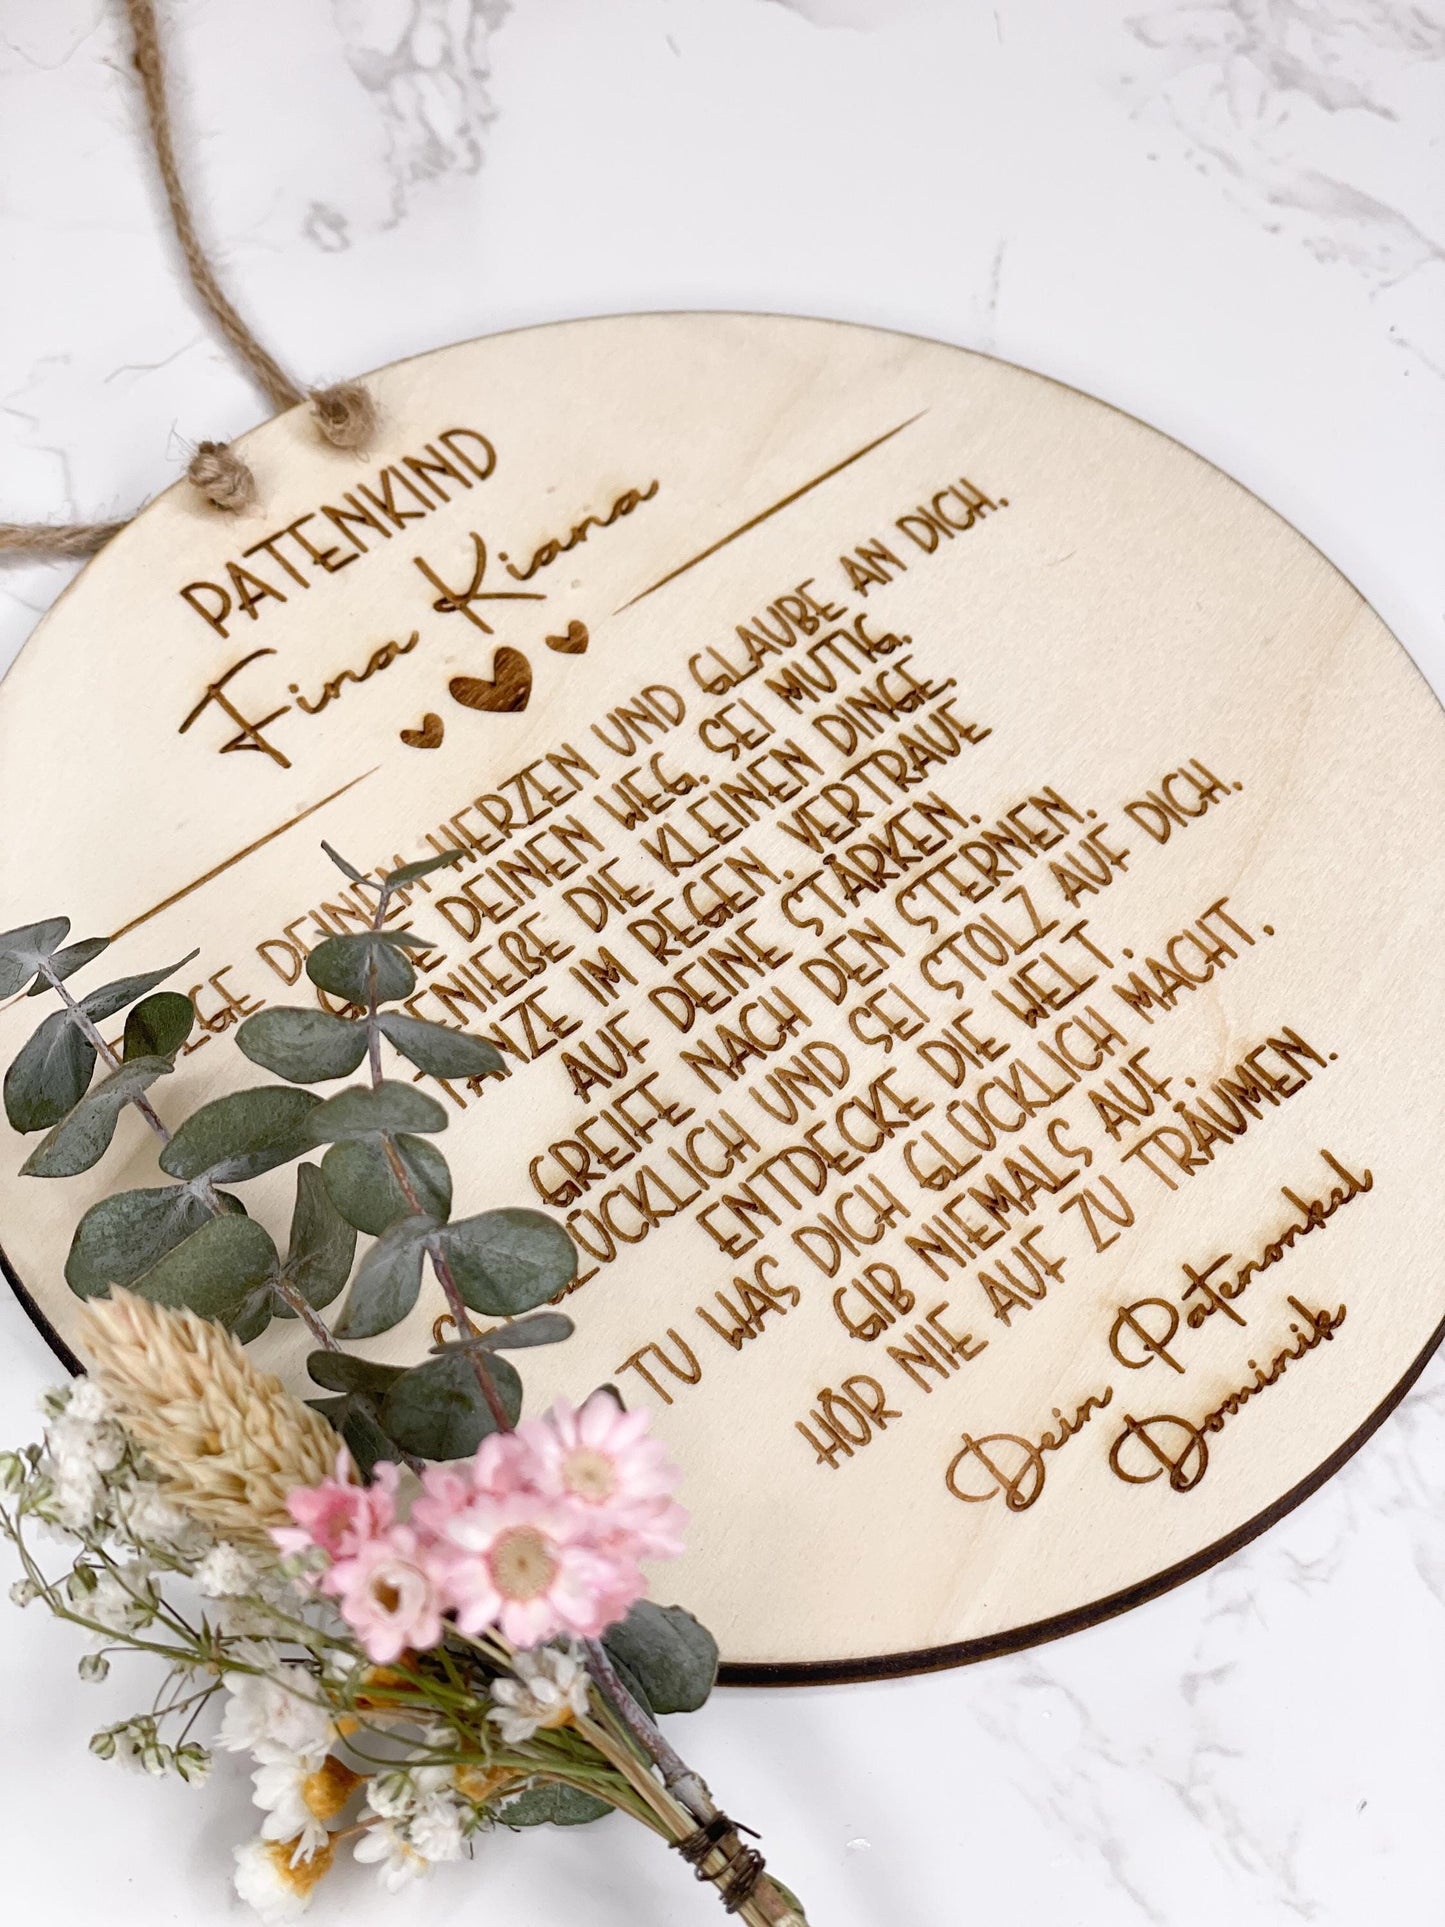 PATENKIND
Fina Kiana
DEINEM HERZEN UND GLAUBE AN DICH.
DEINEN WEG. SEI MUTIG.
GENIEßE DIE KLEINEN DINGE.
TANZE IM REGEN. VERTRAUE
AUF DEINE STÄRKEN.
GREIFE NACH DEN STERNEN.
GLÜCKLICH UND SEI STOLZ AUF DICH.
ENTDECKE DIE WELT.
TU WAS DICH GLÜCKLICH MACHT.
GIB NIEMALS AUF.
HÖR NIE AUF ZU TRÄUMEN.
Dein Patenonkel
Dominik